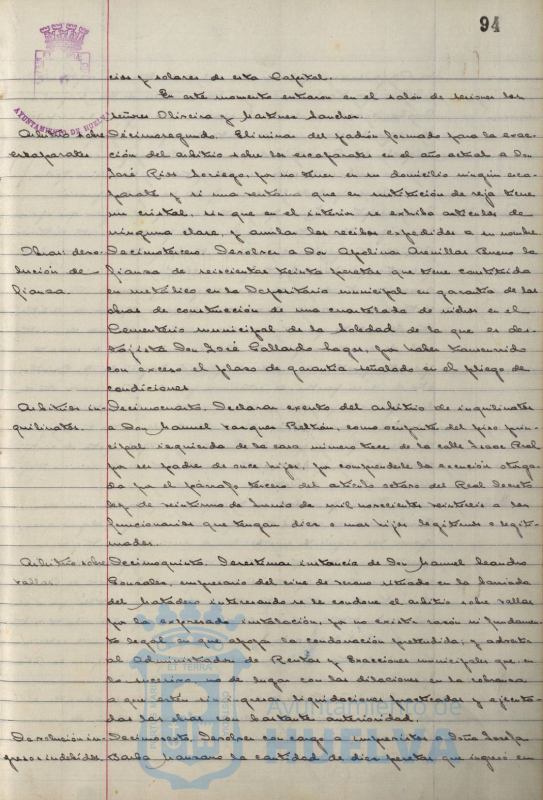 94
AYUNTAMIENTO DE HUELVA
cios y solares de esta Capital.
En este momento entraron en el salón de sesiones los
señores Oliveira y Martinez Sanchez.
Arbitrio sobre
escaparates
Decimosegundo. Eliminar del padrón formado para la exac-
ción del arbitrio sobre los escaparates en el año actual a Don
José Rios Loriego, por no tener en su domicilio ningún esca-
parate y si una ventana que en sustitución de reja tiene
un cristal, sin que en el interior se exhiba artículos de
ninguna clase, y anular los recibos expedidos a su nombre.
Obras: devo-
lución de
fianza.
Decimotercero. Devolver a Don Apolinar Arenillas Bueno la
fianza de seiscientas treinta pesetas que tiene constituida
en metálico en la Depositaría municipal en garantía de las
obras de construcción de una cuartelada de nichos en el
Cementerio municipal de la Soledad de la que es des-
tajista Don José Gallardo Lagos, por haber transcurrido
con exceso el plazo de garantía señalado en el pliego de
condiciones
Arbitrios in-
quilinatos.
Decimocuarto. Declarar exento del arbitrio de inquilinatos
a Don Manuel Vazquez Beltrán, como ocupante del piso prin-
cipal izquierda de la casa número trece de la calle Isaac Peral
por ser padre de once hijos, por comprenderle la exención otorga-
da por el párrafo tercero del artículo octavo del Real Decreto
ley de veintiuno de Junio de mil novecientos veintiseis a los
funcionarios que tengan diez o mas hijos legítimos o legiti-
mados.
Arbitrio sobre
vallas
Decimoquinto. Desestimar instancia de Don Manuel Leandro
Gonzalez, empresario del cine de verano situado en la barriada
del Matadero interesando se le condone el arbitrio sobre vallas
por la expresada instalación, por no existir razón ni fundamen-
to legal en que apoyar la condonación pretendida; y advertir
al Administrador de Rentas y Exacciones municipales que, en
lo sucesivo, no de lugar con las dilaciones en la cobranza
a que estén sin ingresar liquidaciones practicadas y ejecuta-
das las obras con bastante anterioridad.
Devolución in-
gresos indebidos.
Decimosexto. Devolver con cargo a imprevistos a Doña Josefa
Barba Manzano la cantidad de diez pesetas que ingresó en
Ayuntamiento de
HUELVA